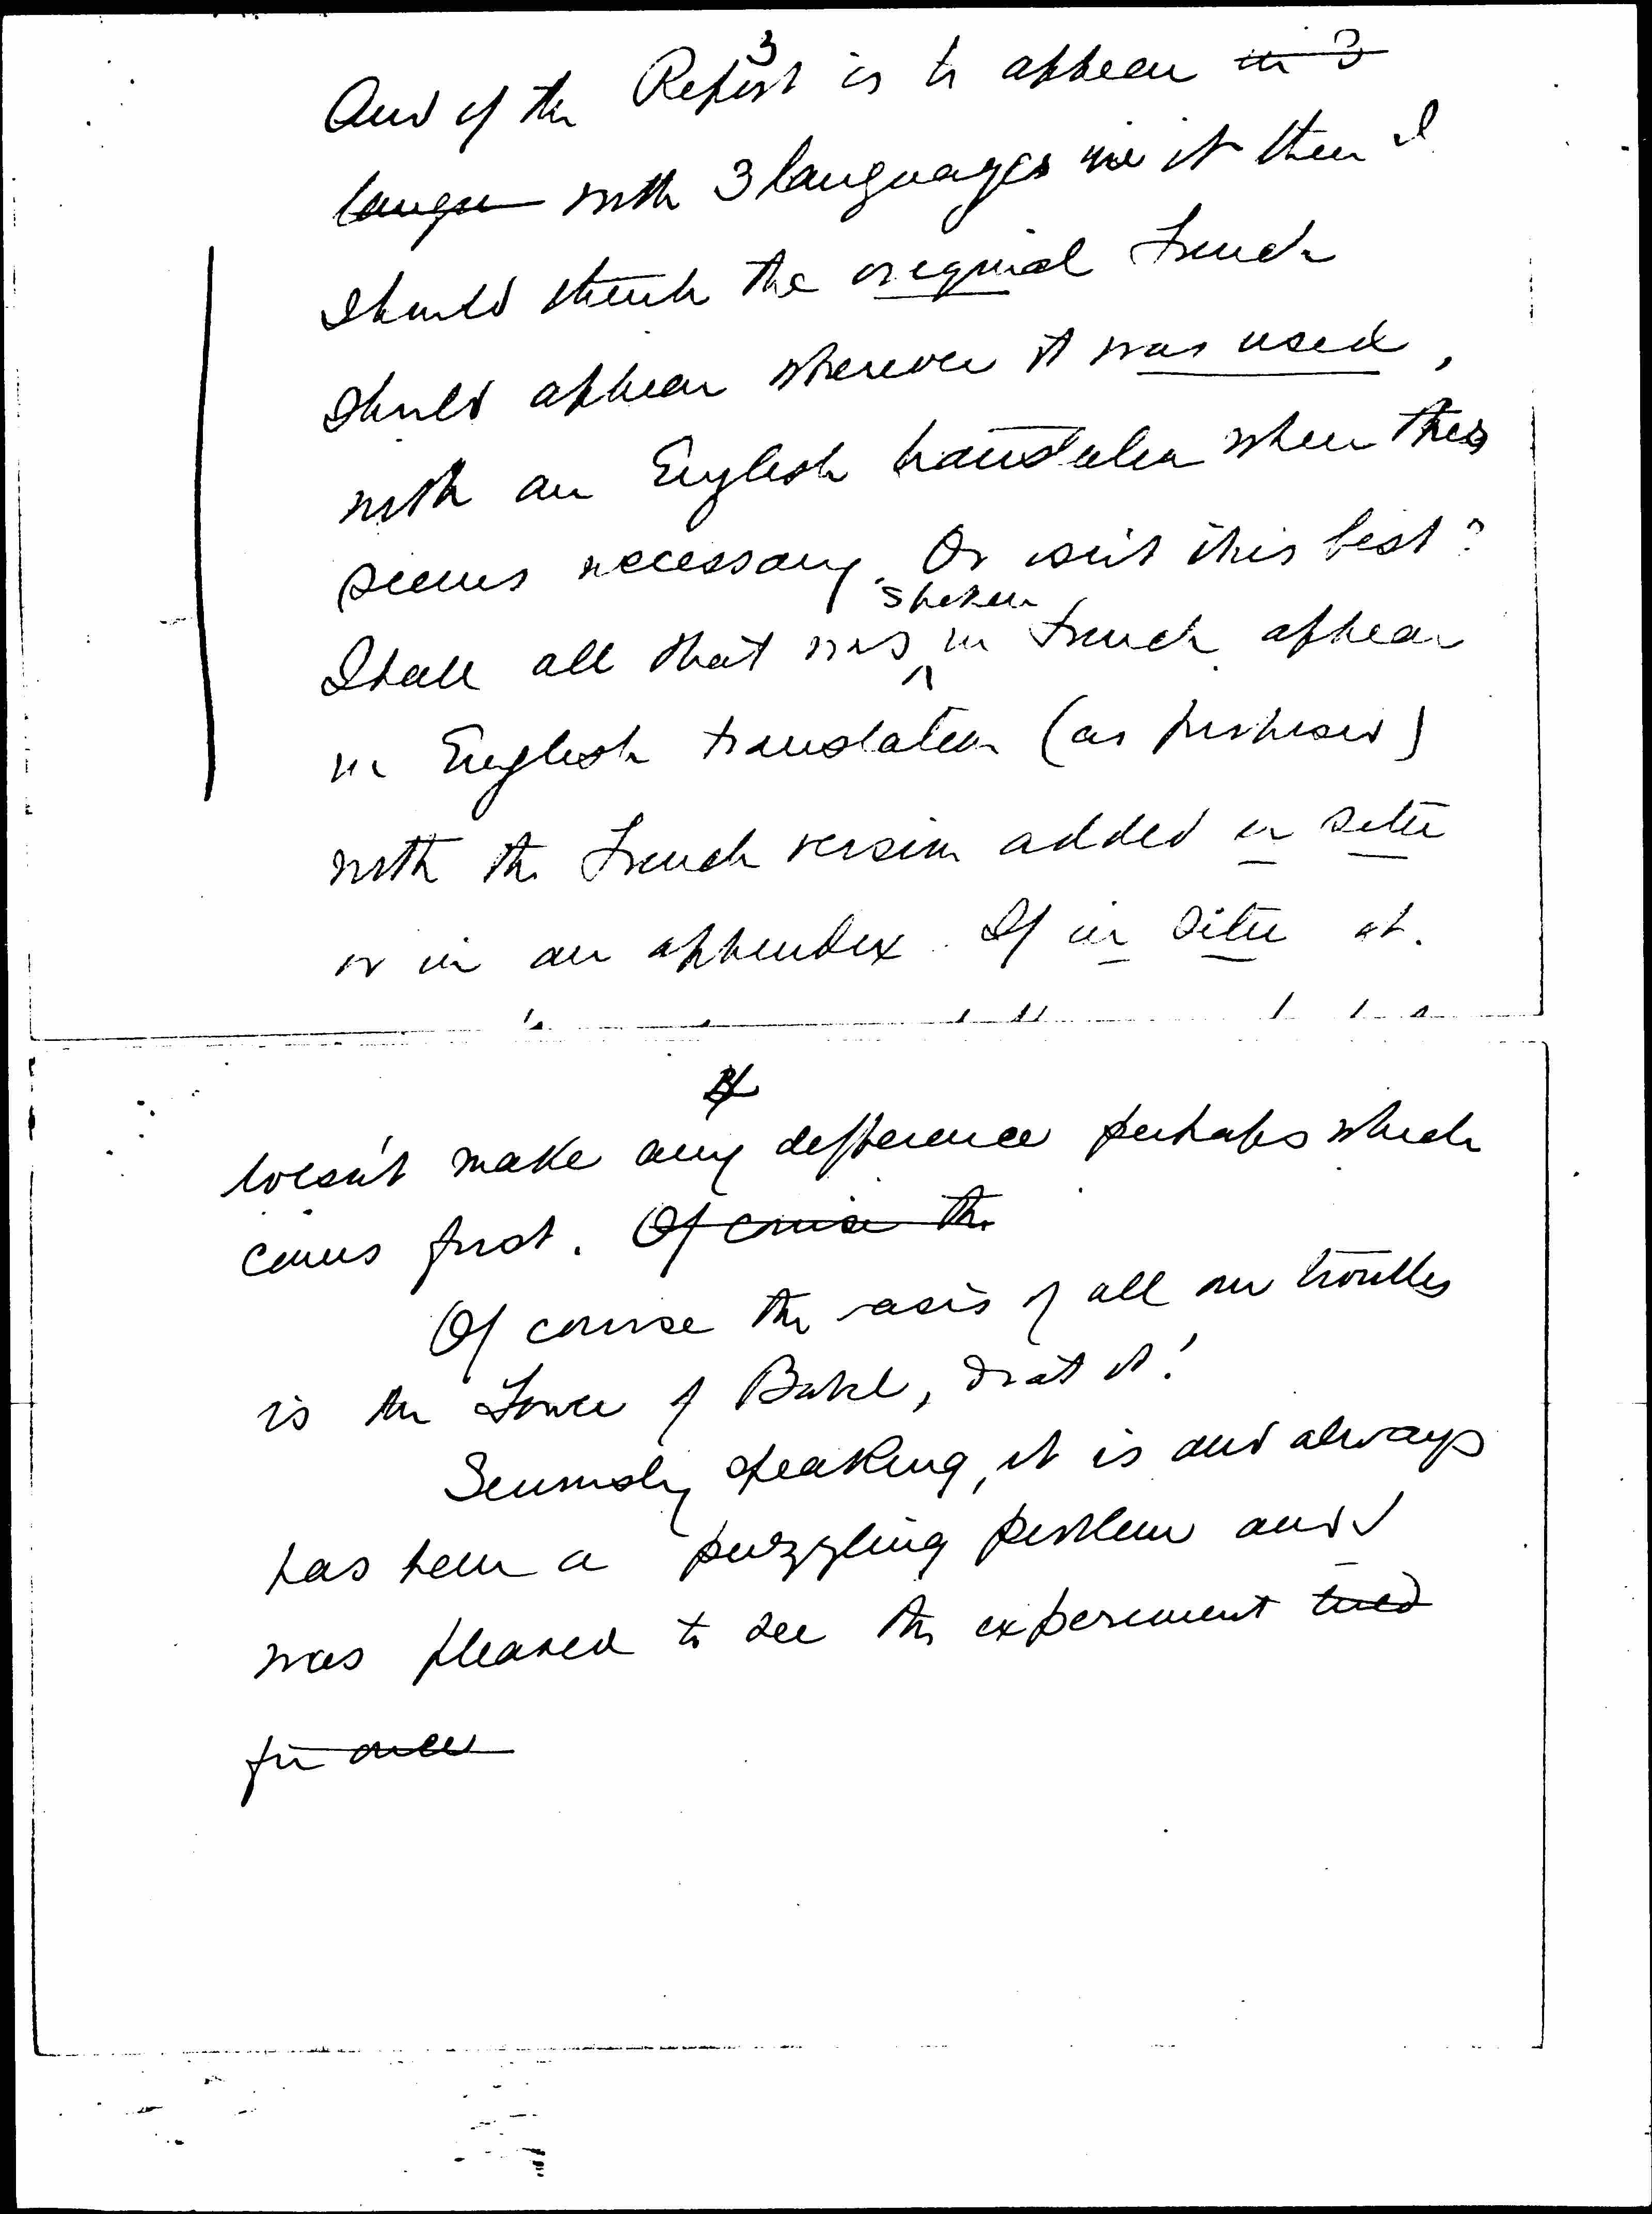 3
And if the Report is to appear in 3
langu with 3 languages in it then I
should think the original French
should appear wherever it was used,
with an English translation when this
seems necessary. Or isn't this best?
spoken
Shall all that was in French appear
in English translation (as proposed)
with the French version added in situ
or in an appendix. If in situ it
4
doesn't make any difference perhaps which
comes first. Of course the
Of course the basis of all our troubles
is the Tower of Babel, drat it!
Seriously speaking, it is and always
has been a puzzling problem and I
was pleased to see the experiment tried
for once